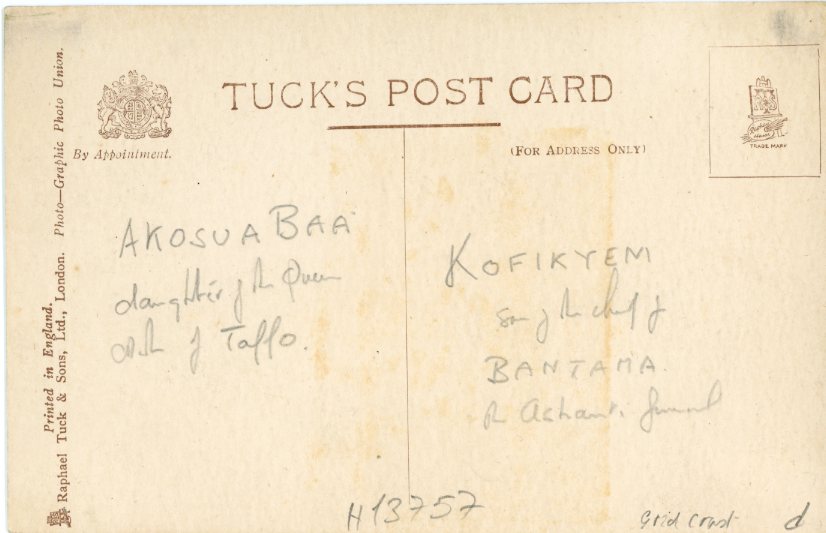 TUCK'S POST CARD
By Appointment.
(FOR ADDRESS ONLY)
TRADE MARK
Printed in England.
Raphael Tuck & Sons, Ltd., London. Photo—Graphic Photo Union.
AKOSUA BAA
daughter of the Queen
of Taffo.
KOFIKYEM
son of the chief of
BANTAMA
the Ashanti
H13757
Gold Coast
d